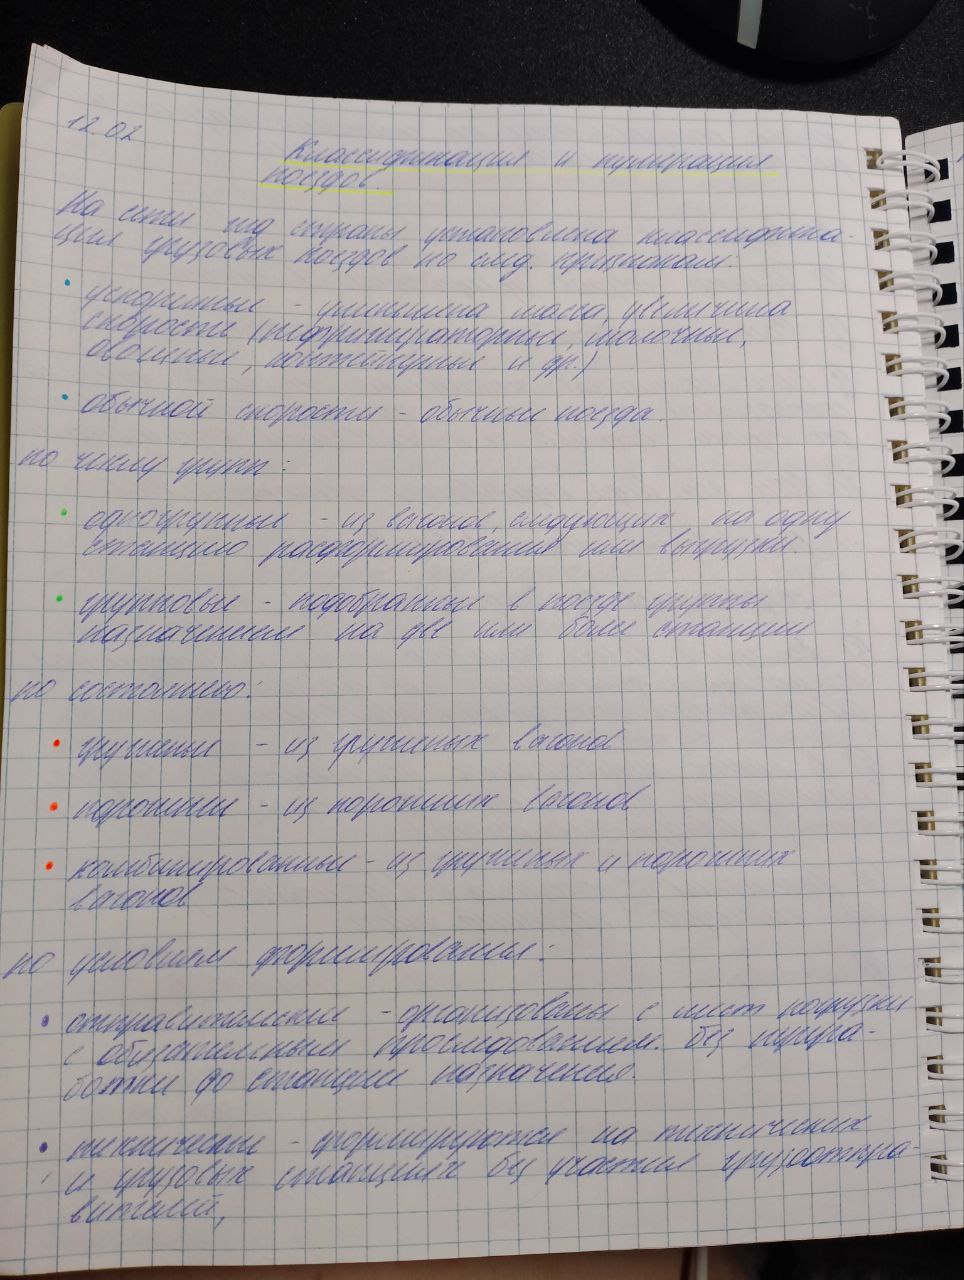 12.02
Классификация и нумерация
поездов.
На сети жд страны установлена классифика-
ция грузовых поездов по след. признакам:
ускоренные - уменьшена масса, увеличина
скорость (рефрижераторные, молочные,
овощные, контейнерные и др.)
обычной скорости - обычные поезда.
по числу групп:
одногрупные - из вагонов, следующих на одну
станцию расформирования или выгрузки.
групповые - подобранные в поезде группы
назначением на две или более станции
по состоянию:
груженые - из груженых вагонов
порожние - из порожних вагонов
комбинированные - из груженых и порожних
вагонов
по условиям формирования:
отправительские - организованы с мест погрузки
с обязательным проследованием. без перера-
ботки до станции назначения.
технические - формируются на технических
и грузовых станциях без участия грузоотпра-
вителей,